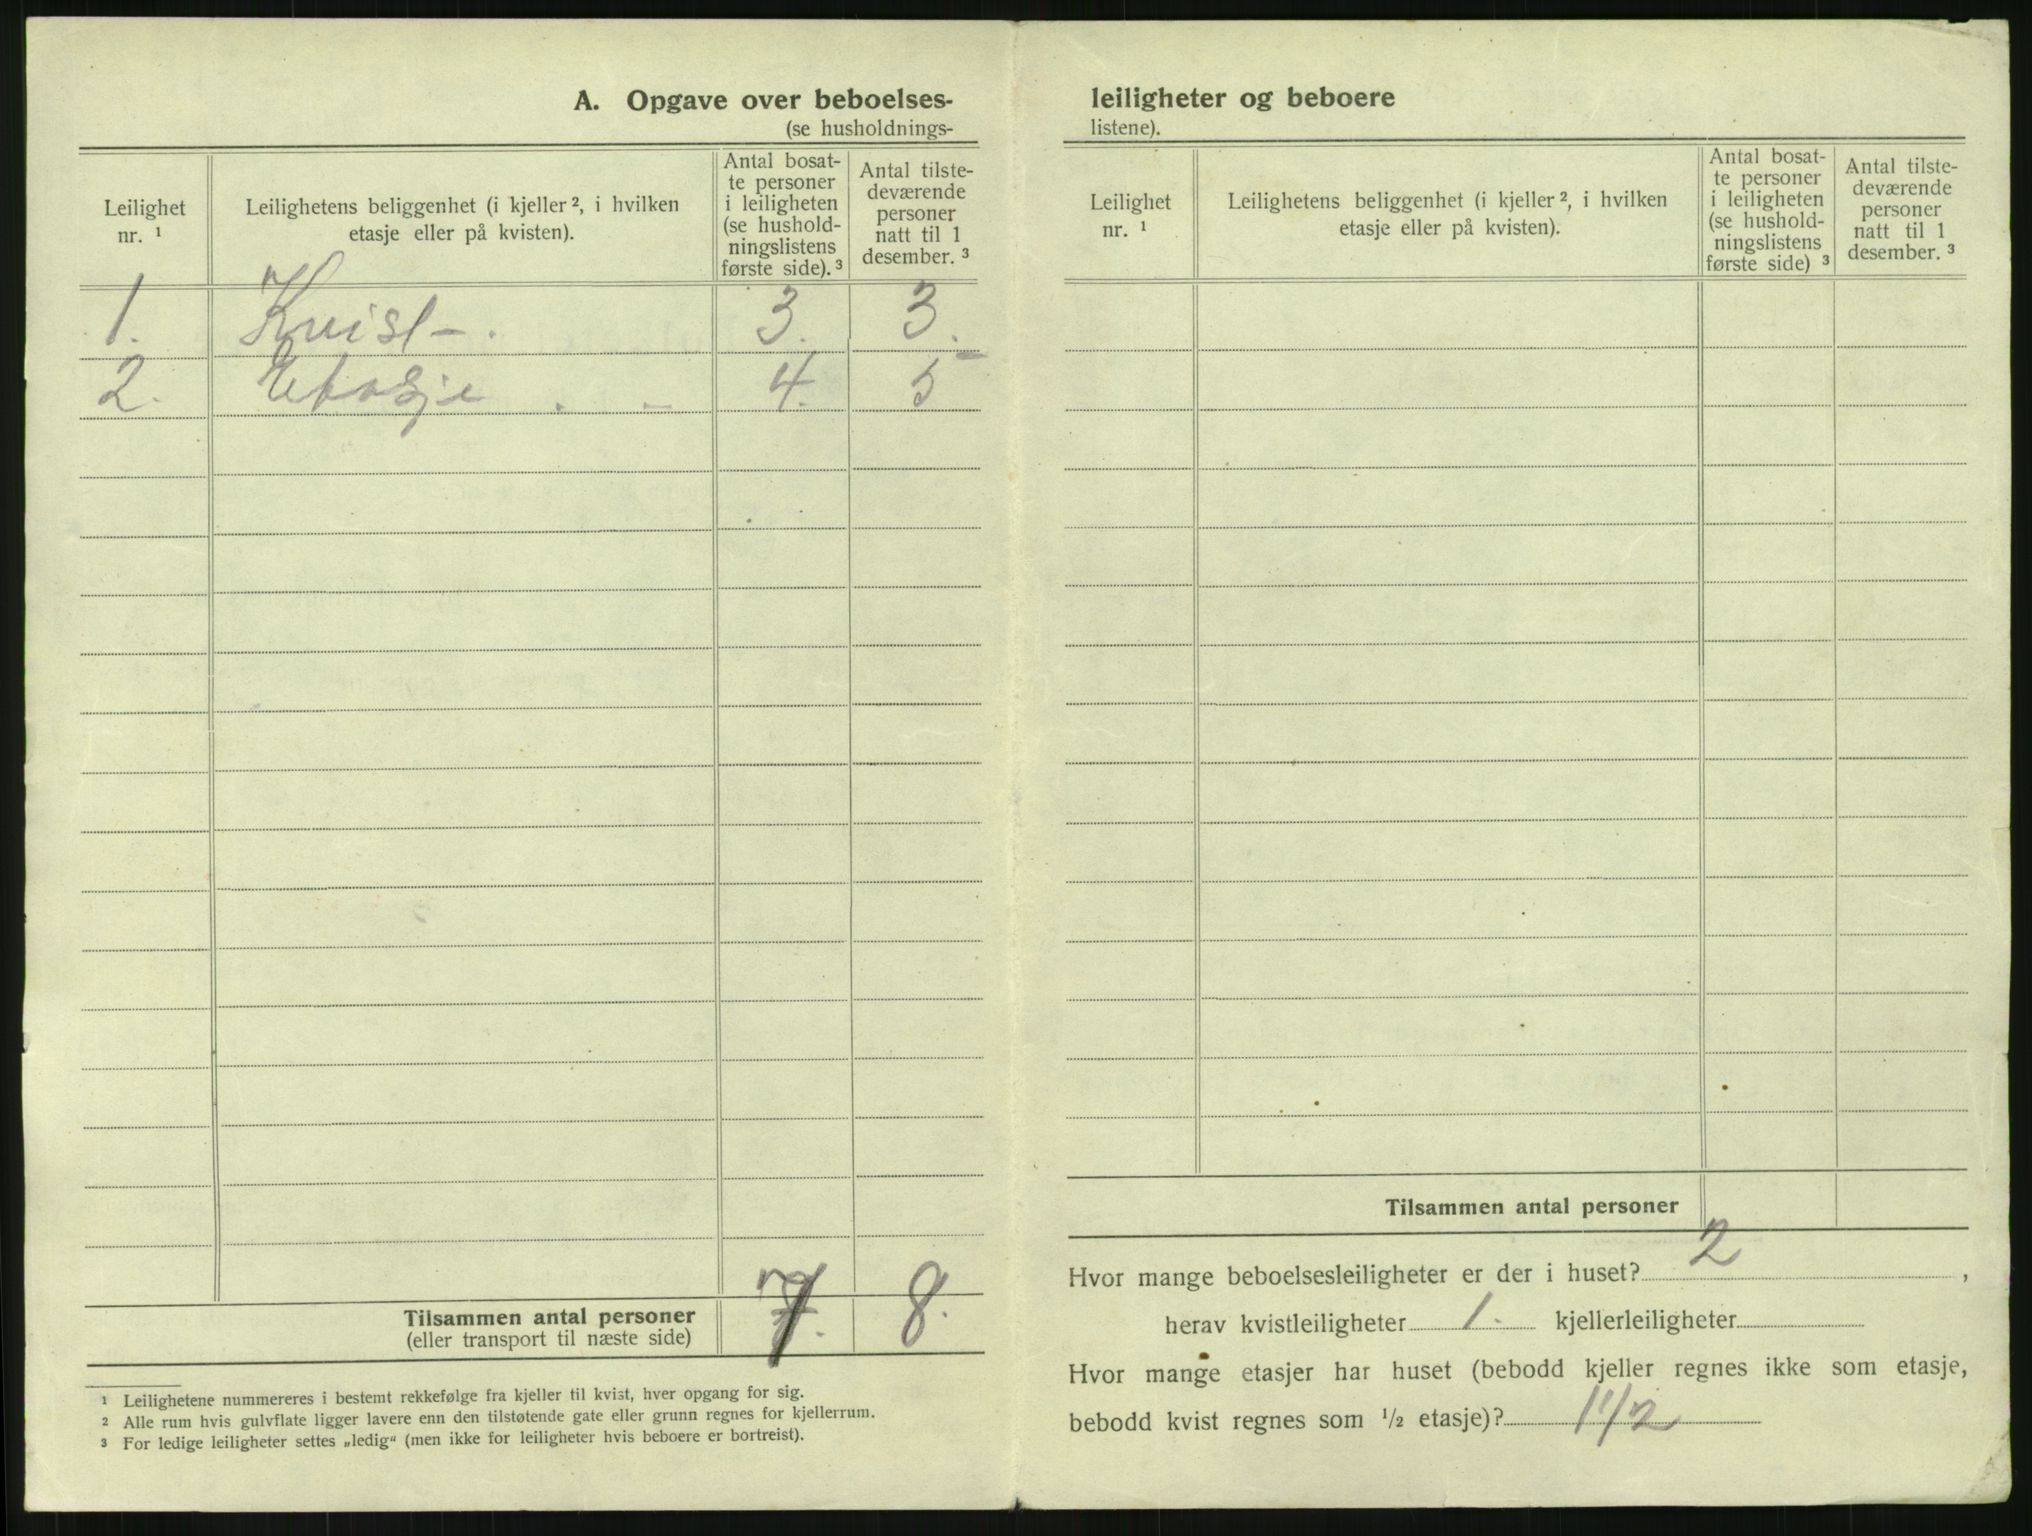 A. Opgave over beboelses-
(se husholdnings-
Leilighet
nr. ¹
Leilighetens beliggenhet (i kjeller ², i hvilken
etasje eller på kvisten).
Antal bosat-
te personer
i leiligheten
(se hushold-
ningslistens
første side). ³
Antal tilste-
deværende
personer
natt til 1
desember. ³
1. Kvist - . 3. 3.
2. Etasje . - 4. 5
Tilsammen antal personer 7. 8.
(eller transport til næste side)
¹ Leilighetene nummereres i bestemt rekkefølge fra kjeller til kvist, hver opgang for sig.
² Alle rum hvis gulvflate ligger lavere enn den tilstøtende gate eller grunn regnes for kjellerrum.
³ For ledige leiligheter settes „ledig“ (men ikke for leiligheter hvis beboere er bortreist).
leiligheter og beboere
listene).
Leilighet
nr. ¹
Leilighetens beliggenhet (i kjeller ², i hvilken
etasje eller på kvisten).
Antal bosat-
te personer
i leiligheten
(se hushold-
ningslistens
første side) ³
Antal tilste-
deværende
personer
natt til 1
desember. ³
Tilsammen antal personer
Hvor mange beboelsesleiligheter er der i huset? 2 ,
herav kvistleiligheter 1. kjellerleiligheter
Hvor mange etasjer har huset (bebodd kjeller regnes ikke som etasje,
bebodd kvist regnes som ¹/₂ etasje)? 1 1/2